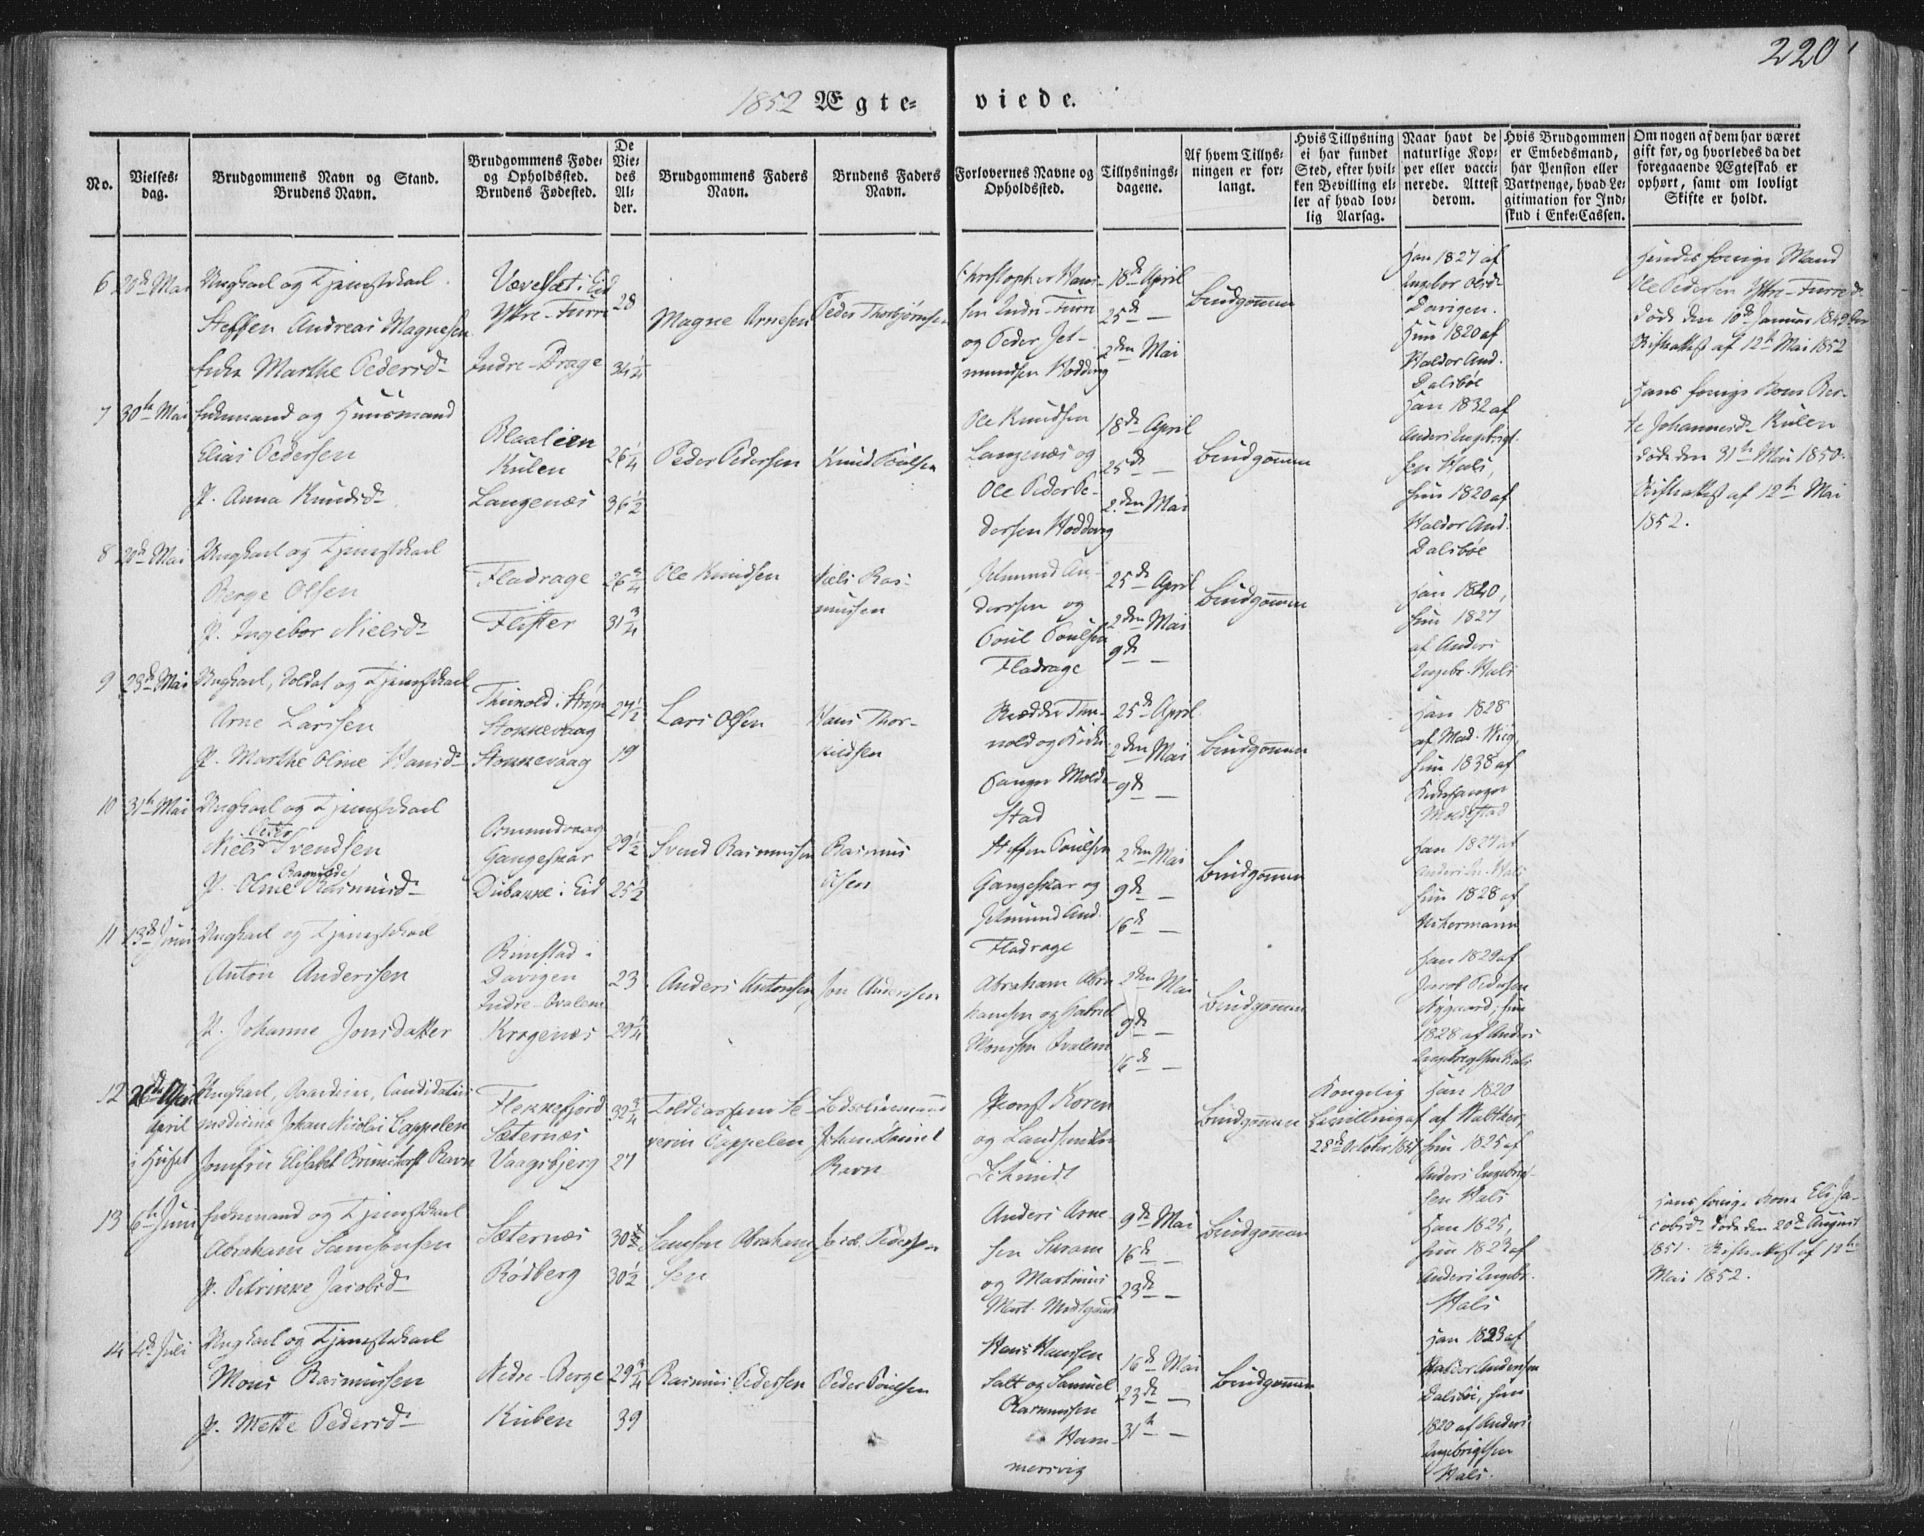 220
1852 Ægte-viede.
No.
Vielses-dag.
Brudgommens Navn og Stand.
Brudens Navn.
Brudgommens Føde- og Opholdsted.
Brudens Fødested.
De Vie-des Al-der.
Brudgommens Faders Navn.
Brudens Faders Navn.
Forlovernes Navne og Opholdsted.
Tillysnings-dagene.
Af hvem Tillys-ningen er for-langt.
Hvis Tillysning ei har fundet Sted, efter hvil-ken Bevilling el-ler af hvad lov-lig Aarsag.
Naar havt de naturlige Kop-per eller vacci-nerede. Attest derom.
Hvis Brudgommen er Embedsmand, har Pension eller Vartpenge, hvad Le-gitimation for Ind-skud i Enke-Cassen.
Om nogen af dem har været gift før, og hvorledes da det foregaaende Ægteskab er ophørt, samt om lovligt Skifte er holdt.
6 20de Mai
Ungkarl og Tjenestekarl
Steffen Andreas Magnesen
Enke Marthe Pedersd.
Ytre-Furre
Indre-Drage
28
34 1/4
Magne Arnesen
Peder Thorbjørnsen
og Peder Jet-
mundsen Hodding
18de April
25de —
2den Mai
Brudgommen
Han 1827 af
Davigen.
Hun 1820 af
Haldor And.
Dalsbøe
Hendes forrige Mand
Ole Pedersen Ytre-Furre
døde den 10de Januar 1849
Skifteattest af 12te Mai 1852
7 30te Mai
Enkemand og Huusmand
Elias Pedersen
P. Anna Knudsd.
Blaalien
Kulen
Langenæs
26 1/4
36 1/2
Peder Pedersen
Knud Poulsen
Ole Knudsen
Langenæs og
Ole Peder Pe-
dersen Hodding
18de April
25de —
2den Mai
Brudgommen
Han 1832 af
Anders Ingebrigt-
sen Hals,
Hun 1820 af
Haldor And.
Dalsbøe
Hans forrige Kone Ber-
te Johannesd. Kulen
døde den 31te Mai 1850.
Skifteattest af 12te Mai
1852.
8 20de Mai
Ungkarl og Tjenestekarl
Berge Olsen
P. Ingebor Nielsd.
Fladrage
Flister
26 3/4
31 3/4
Ole Knudsen
Niels Ras-
mussen
Jetmund An-
dersen og
Poul Poulsen
Fladrage
25de April
2den Mai
9de —
Brudgommen
Han 1840,
Hun 1827
af Anders
Ingebr. Hals
9 23de Mai
Ungkarl, Soldat og Tjenestekarl
Arne Larssen
P. Marthe Oline Hansd.
Stokkevaag
Stokkevaag
27 1/2
19
Lars Olsen
Hans Thor-
kildsen
25de April
2den Mai
9de —
Brudgommen
Han 1828
Hun 1838 af
Kirkesanger
Moldestad
10 31te Mai
Ungkarl og Tjenestekarl
Niels Peter Svendsen
P. Oline Ragnilde Rasmusd.
Osmundvaag
Gangeskar
Dubakke i Eid
29 1/2
25 1/2
Svend Rasmussen
Rasmus
Olsen
Steffen Poulsen
Gangeskar og
Jetmund And.
Fladrage
2den Mai
9de —
16de —
Brudgommen
Han 1827 af
Anders In. Hals
Hun 1828 af
11 13de Juni
Ungkarl og Tjenestekarl
Anton Andersen
P. Johanne Jonsdatter
Rimstad i
Davigen
Indre-Qvalem
Krogenæs
23
29 1/4
Anders Antonsen
Jon Andersen
Abraham Abra-
hamsen og Gabriel
Monssen Qvalem
2den Mai
9de —
16de —
Brudgommen
Han 1829 af
Jacob Pedersen
Nygaard, Hun
1828 af Anders
Ingebrigtsen Hals
12
April
i Huset
Ungkarl, Candidatus
medicinæ Johan Nicolai Cappelen
Jomfru Elisabet Ravn
Flekkefjord
Sæternæs
Vaagsbjerg
32 3/4
27
Cappelen
Johan Daniel
Ravn
Provst Koren
Schmidt
Brudgommen
Kongelig
Bevilling af
28de October 1851
Han 1820
Hun 1825 af
Anders Ingebrigt-
sen Hals
13 6te Juni
Enkemand og Tjenestekarl
Abraham Samsonsen
P. Petrikke Jacobsd.
Sæternæs
Rødberg
30 1/2
Samson Abraham-
sen
Jacob Pedersen
Anders Arne-
og Martinus
9de Mai
16de —
23de —
Brudgommen
Han 1825,
Hun 1823 af
Anders Ingebr.
Hals
Hans forrige Kone Eli Ja-
cobsd. døde den 20de August
1851. Skifteattest af 12te
Mai 1852.
14 4de Juli
Ungkarl og Tjenestekarl
Mons Rasmussen
P. Mette Pedersd.
Nedre-Berge
Kuben
29 3/4
39
Rasmus Pedersen
Peder Poulsen
Hans Hanssen
Salt og Samuel
Rasmussen
Ham-
mersvig
16de Mai
23de —
31te —
Brudgommen
Han 1823 af
Haldor Andersen
Dalsbøe, Hun
1820 af Anders
Ingebrigtsen
Hals.